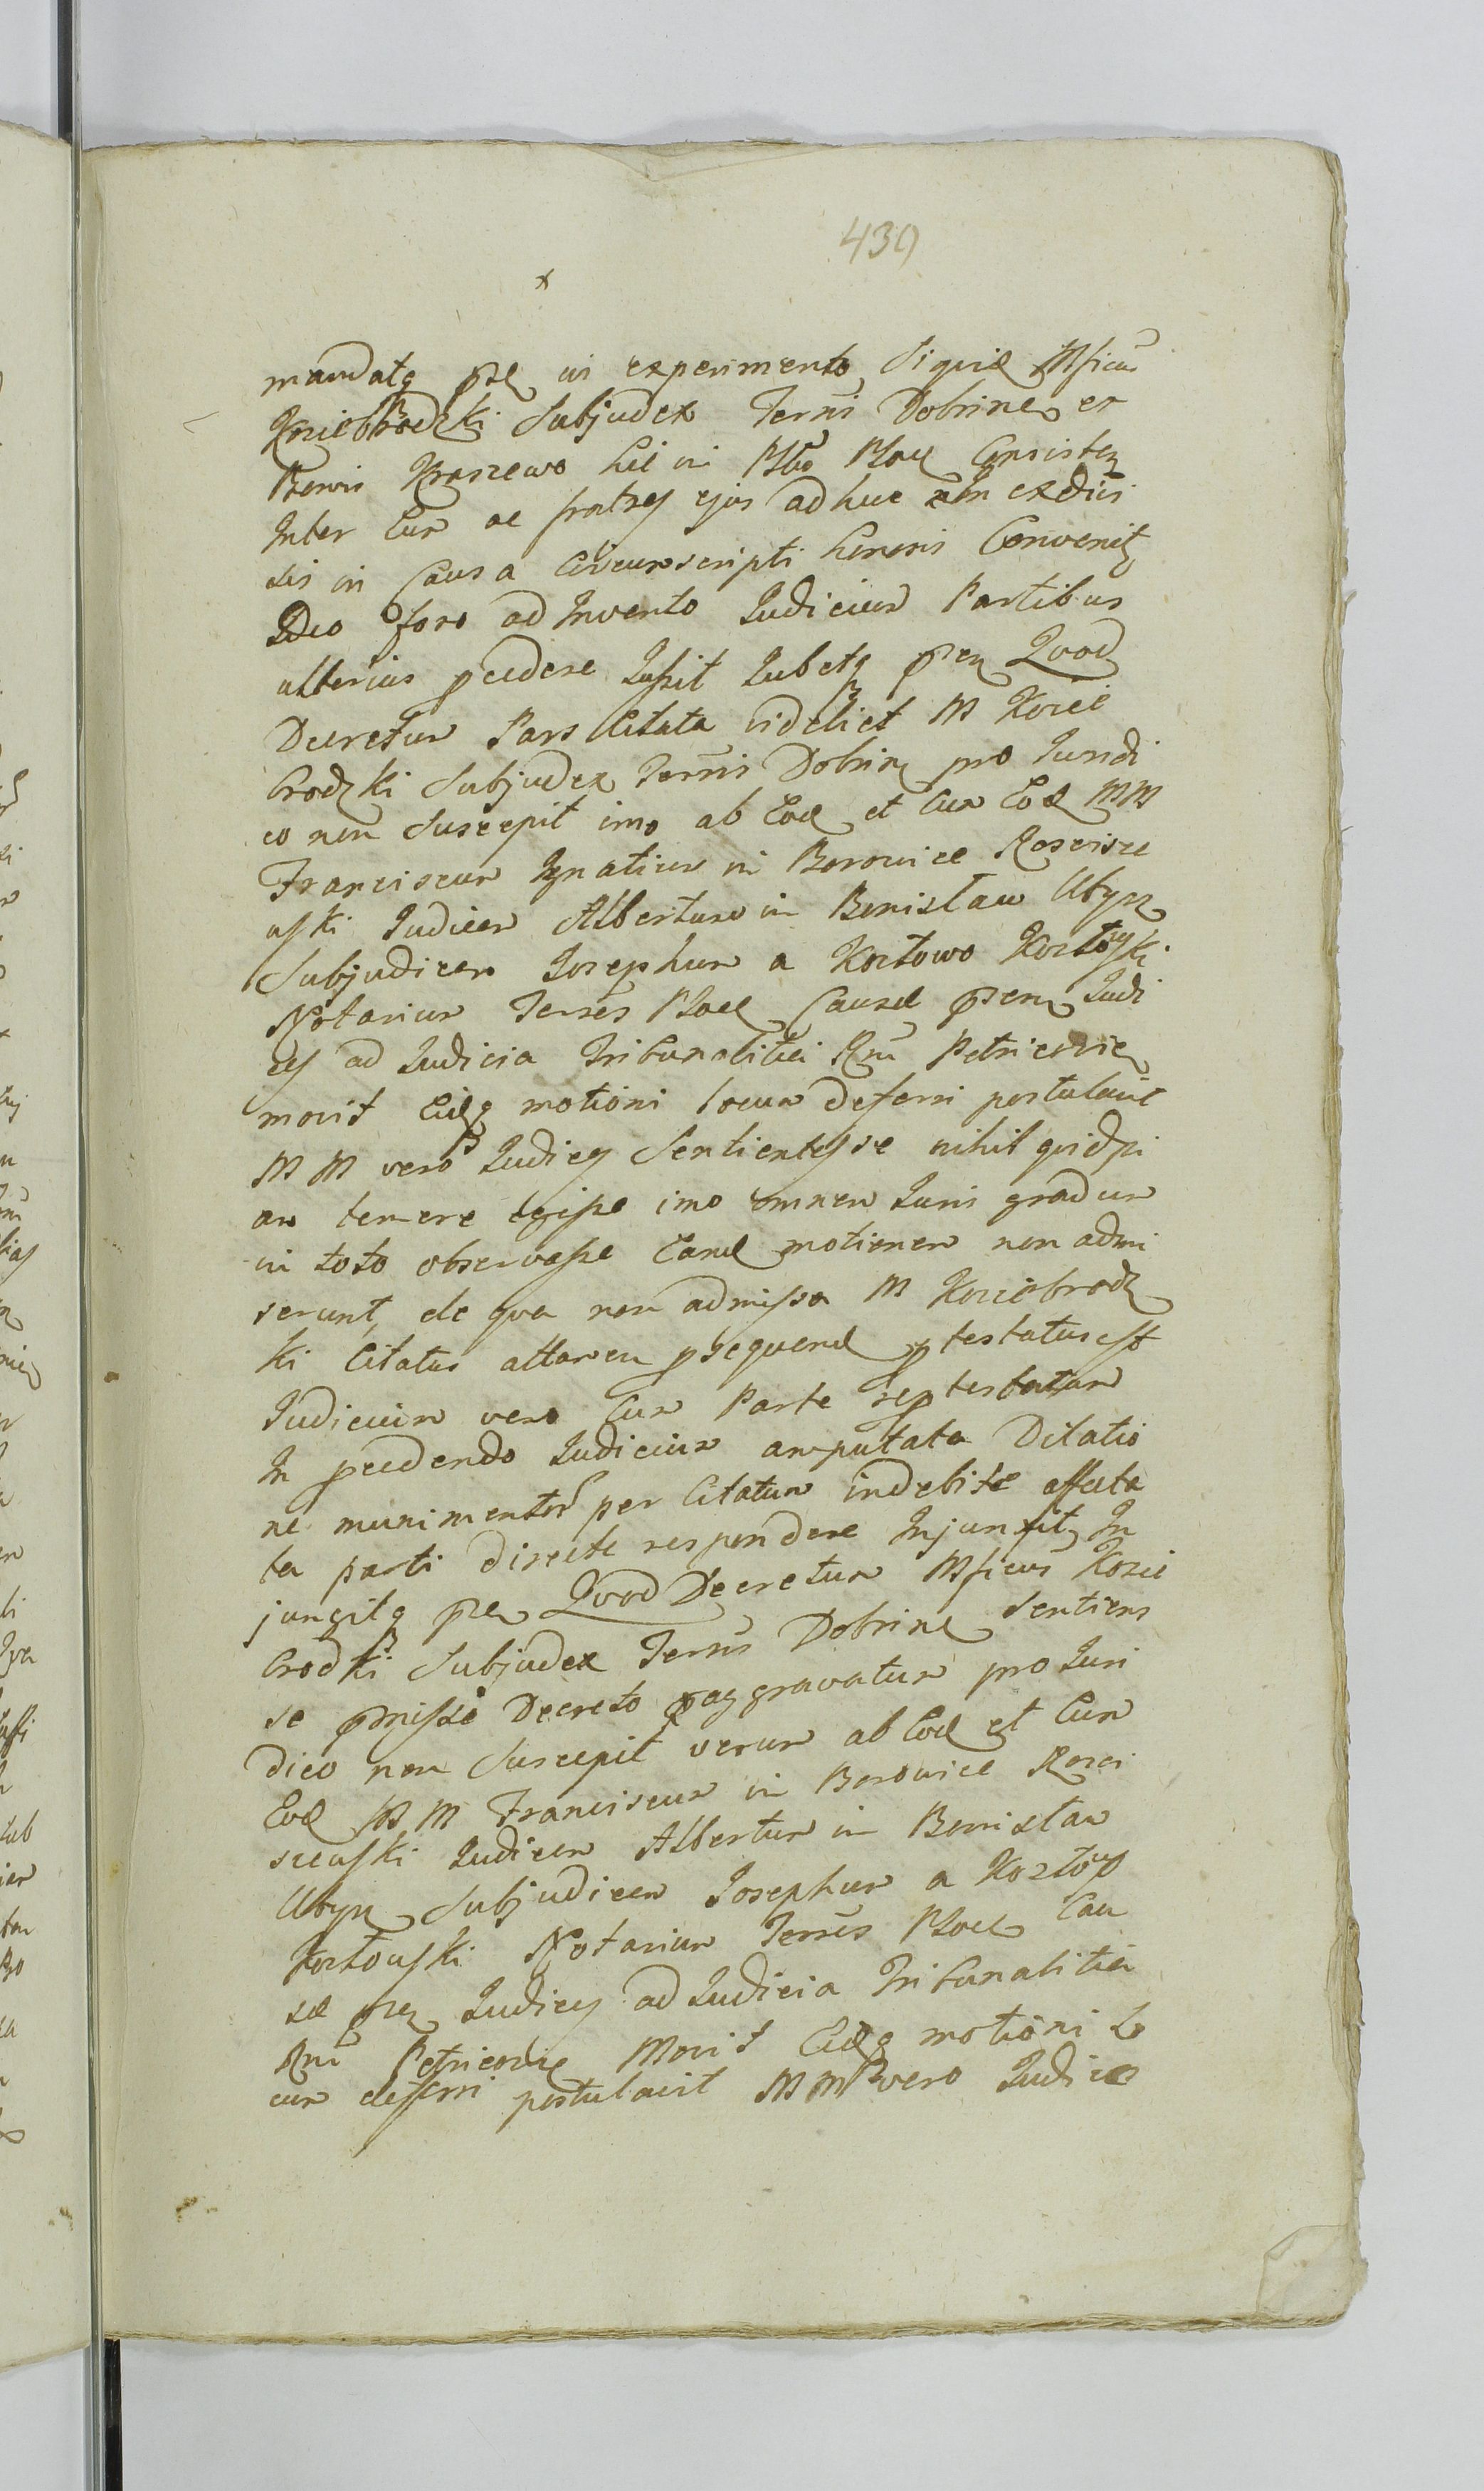 439
x
mandatq pse in experimento, Siquid Mficus
Koziebrodzki Subjudex Terris Dobrinen ex
Bonis Kraszewo hic in Pltu Ploc Consisten
Inter Eum ac fratres ejus ad huc non exdivi
sis in Causa Circumscripti honoris Convenit,
Ideo foro ad Invento Judicium Partibus
ulterius pcedere Jussit Jubetq psen Quod
Decretum Pars Citata videlicet M Kozie
brodzki Subjudex Terris Dobrin pro Juridi
co non Suscepit imo ab Eod et cum Eod MM
Franciscum Ignatium in Borowice Roscisze
wski Judicem Albertum in Bonislaw Ubysz
Subjudicem Josephum a Koztowo Koztowski
Notarium Terres Ploc Causae psen Judi
ces ad Judicia Tribunalitia Rni Petricovien
movit Eidq motioni locum deferri postulavit
MM vero Judices Sentientes se nihil quidpi
am temere egisse imo omnem Juris gradum
in toto observasse Eand motionem non admi
serunt, de qua non admissa M Koziebrodz
ki Citatus attamen psequend ptestatus est
Judicium vero Cum Parte reptestatum
In pcedendo Judicium amputata Dilatio
ne munimentor per Citatum indebite affecta
ta parti directe respondere Injunxit, In
jungitq psen Quod Decretum Mficus Kozie
brodzki Subjudex Terris Dobrine Sentiens
se pmisso Decreto aggravatum pro Juri
dico non Suscepit verum ab Eod et Cum
Eod MM Franciscum in Borowice Rosci
szewski Judicem Albertum in Bonislaw
Ubysz Subjudicem Josephum a Koztowo
Koztowski Notarium Terres Ploc Cau
sae psen Judices ad Judicia Tribunalitia
Rni Petricovie Movit Eidq motioni lo
cum deferri postulavit MM vero Judices